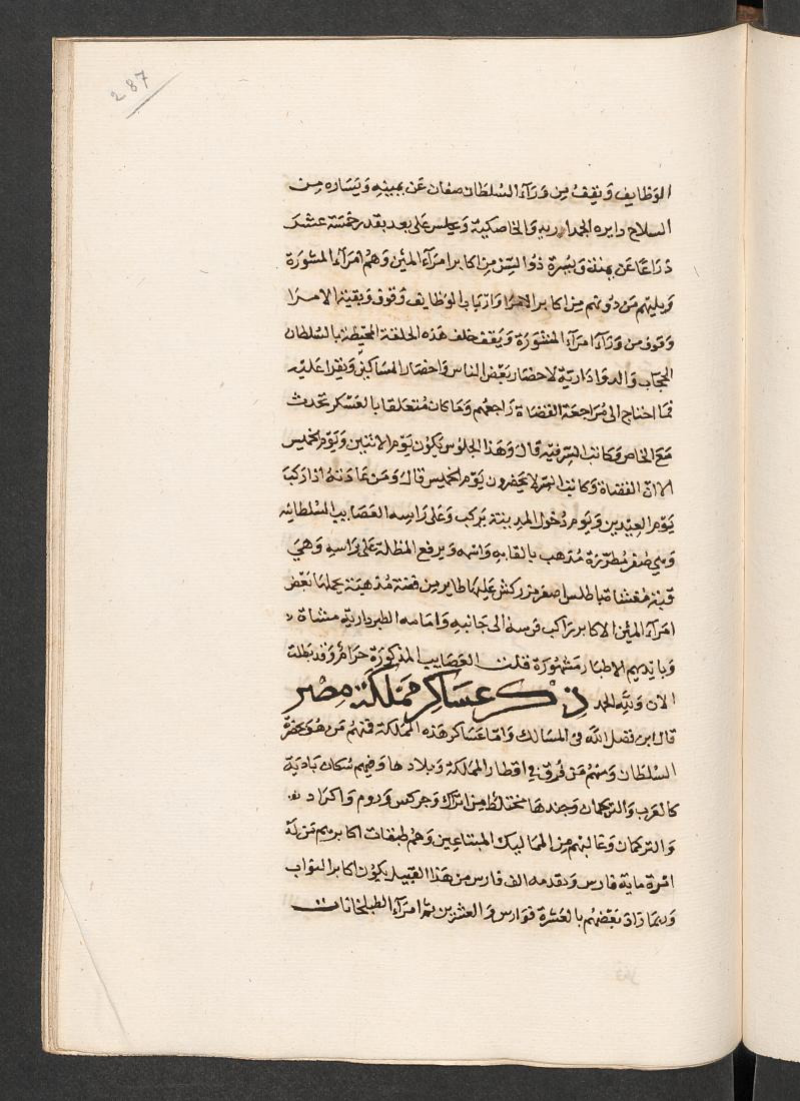 287
الوظايف ونقف من وراء السلطان صفان عن يمينه ويساره من
السلاح دايره الجمداريه والخاصكية ويجلس على بعد بقدر خمسة عشر
ذراعا عن يمنة ويسرة ذوالسن من اكابر امراء المئين وهم امراء المشورة
ويليهم من دونهم من اكابر الامرا وارباب الوظايف وقوف وبقية الامرا
وقوف من وراء امراء المشورة ويقف خلف هذه الحلقة المحيطة بالسلطان
الحجاب والدوادارية لاحضار بعض الناس واحضار المساكين ويقرا عليه
فما احتاج الى مراجعة القضاة راجعهم وما كان متعلقا بالعسكر تحدث
مع الخاص وكاتب السر فيه قال وهذا الجلوس يكون يوم الاثنين ويوم الخميس
الا ان القضاة وكاتب السر لا يحضرون يوم الخميس قال ومن عادته اذا ركب
يوم العيدين ويوم دخول المدينة يركب وعلى راسه العصايب السلطانيه
وهي صفر مطرزة مذهب بالقابه واسمه ويرفع المظلة على راسه وهي
قبة مغشاة باطلس اصفر مزركش عليها طاير من فضة مذهبة يحملها بعض
امراء المئين الاكابر راكب فرسه الى جانبه وامامه الطبردارية مشاة
وبايديهم الاطبار مشهورة قلت العصايب المذكورة حرام وقد بطلت
الان ولله الحمد ذكر عساكر مملكة مصر
قال ابن فضل الله في المسالك واما عساكر هذه المملكة فمنهم من هو بحضرة
السلطان ومنهم من فرق في اقطار المملكة وبلادها وفيهم سكان بادية
كالعرب والتركمان وجندها مختلط من اتراك وجركس وروم واكراد
والتركمان وغالبهم من المماليك المبتاعين وهم طبقات اكابرهم من له
امرة ماية فارس وتقدمه الف فارس من هذا القبيل يكون اكابر النواب
وربما زاد بعضهم بالعشرة فوارس والعشرين ثم امراء الطبلخانات